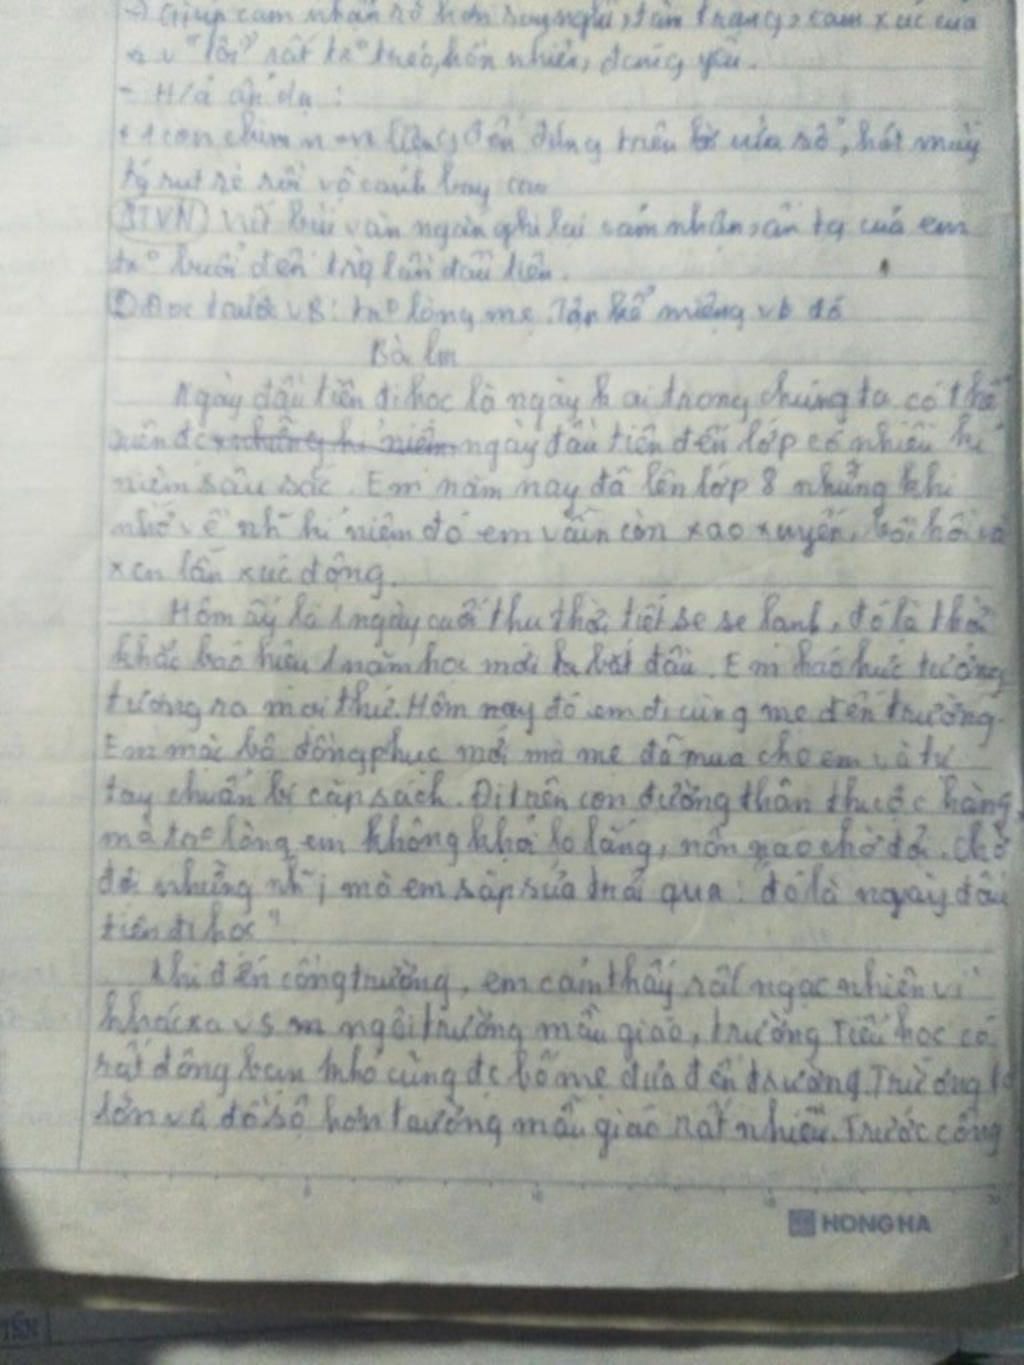 → Giúp cảm nhận rõ hơn suy nghĩ, tâm trạng, cảm xúc của
n v "tôi" rất trº thơ, hồn nhiên, đáng yêu.
- H/ả ẩn dụ :
+ 1 con chim n-n liệng đến đứng trên bờ cửa sổ, hát mấy
rụt rè rồi vỗ cánh bay cao
BTVN Viết bài văn ngắn ghi lại cảm nhận, ấn tg của em
trº buổi đến trg lần đầu tiên.
Đọc trước VB: trº lòng mẹ. Tập kể miệng vb đó
Bài lm
Ngày đầu tiên đi học là ngày k ai trong chúng ta có thể
ngày đầu tiên đến lớp có nhiều kỉ
niệm sâu sắc. Em năm nay đã lên lớp 8 nhưng khi
nhớ về nh~ kỉ niệm đó em vẫn còn xao xuyến, bồi hồi và
xen lẫn xúc động.
Hôm ấy là 1 ngày cuối thu thời tiết se se lạnh, đó là thời
khắc báo hiệu 1 năm học mới bắt đầu. Em háo hức tưởng
tượng ra mọi thứ. Hôm nay đó em đi cùng mẹ đến trường.
Em mặc bộ đồng phục mới mà mẹ đã mua cho em và tự
tay chuẩn bị cặp sách. Đi trên con đường thân thuộc hàng
mà trº lòng em không khỏi lo lắng, nôn nao chờ đợi. Chờ
đợi những mà em sắp sửa trải qua: "đó là ngày đầu
tiên đi học".
Khi đến cổng trường, em cảm thấy rất ngạc nhiên vì
khác xa vs ngôi trường mẫu giáo, trường Tiểu học có
rất đông bạn nhỏ cùng đc bố mẹ đưa đến trường. Trường
lớn và đồ sộ hơn trường mẫu giáo rất nhiều. Trước cổng
HONG HA